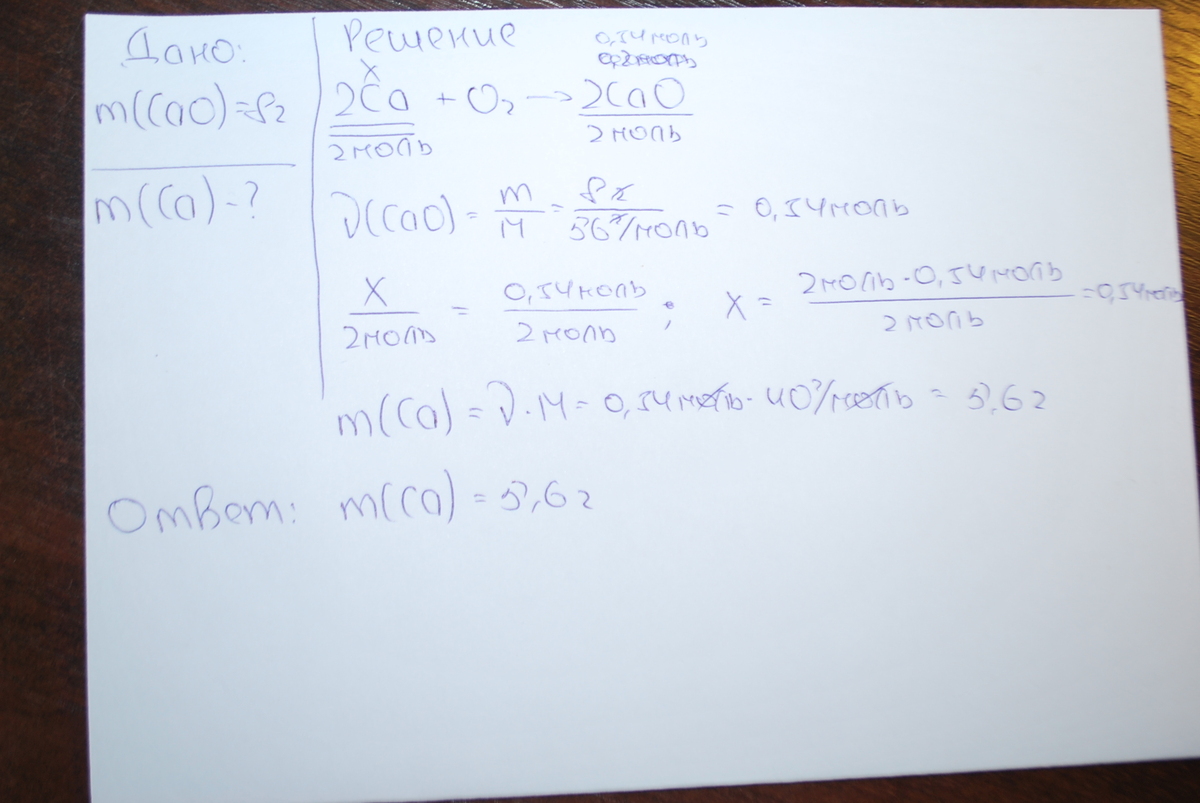 Дано:
m(CaO)=8г
m(Ca)-?
Решение
0,14моль
x
2Ca + O₂ → 2CaO
2моль 2моль
ν(CaO) = m/M = 8г/56г/моль = 0,14моль
x/2моль = 0,14моль/2моль ; x = 2моль·0,14моль/2моль =0,14моль
m(Ca) = ν·M = 0,14моль·40г/моль = 5,6г
Ответ: m(Ca) = 5,6г